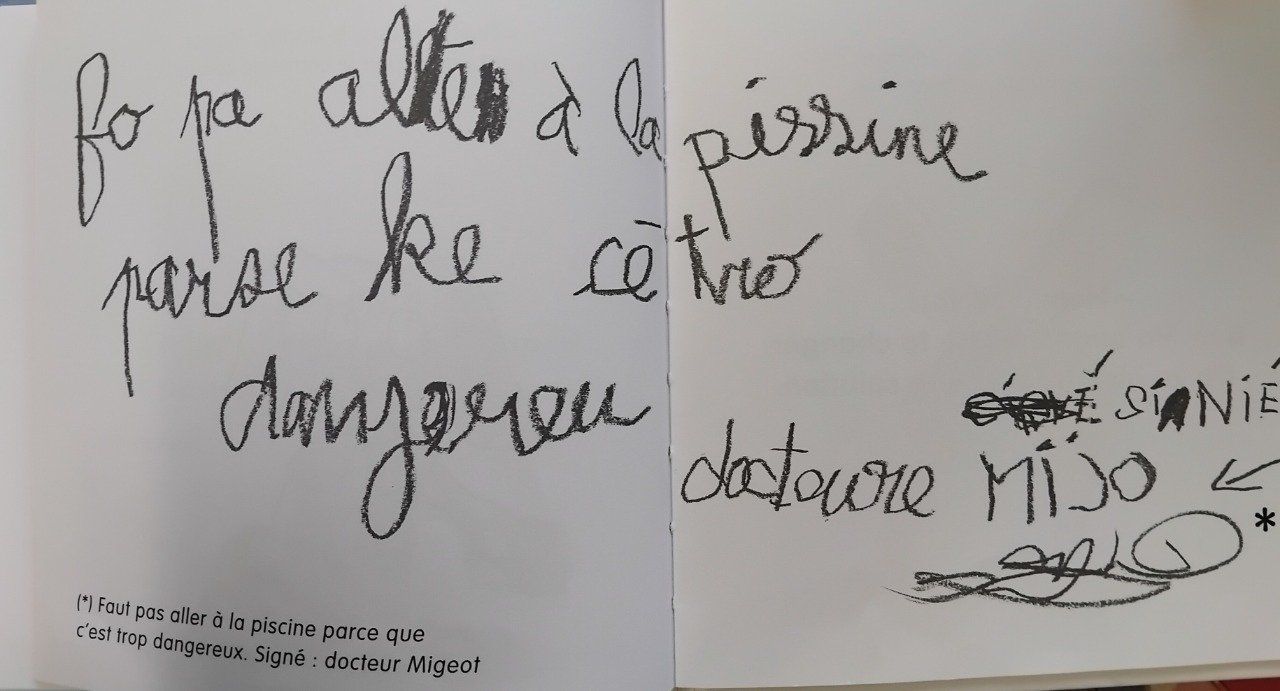 fo pa alé à la pissine
parse ke cè tro
dangereu
SiNIÉ
docteure MiJO
*
(*) Faut pas aller à la piscine parce que
c'est trop dangereux. Signé : docteur Migeot